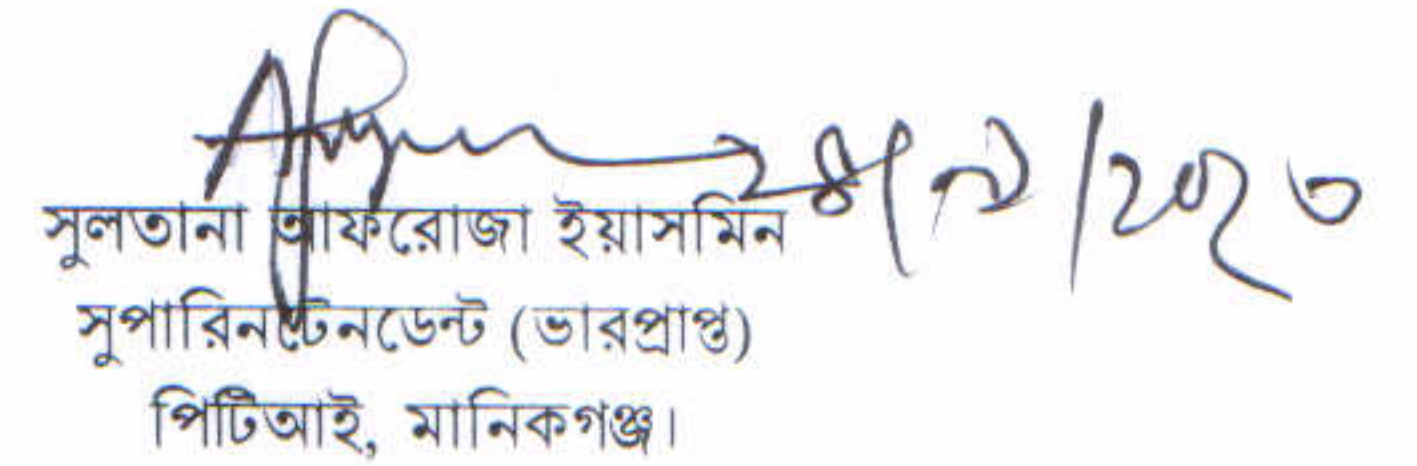 ২৪/৯/২০২৩
সুলতানা আফরোজা ইয়াসমিন
সুপারিনটেনডেন্ট (ভারপ্রাপ্ত)
পিটিআই, মানিকগঞ্জ।